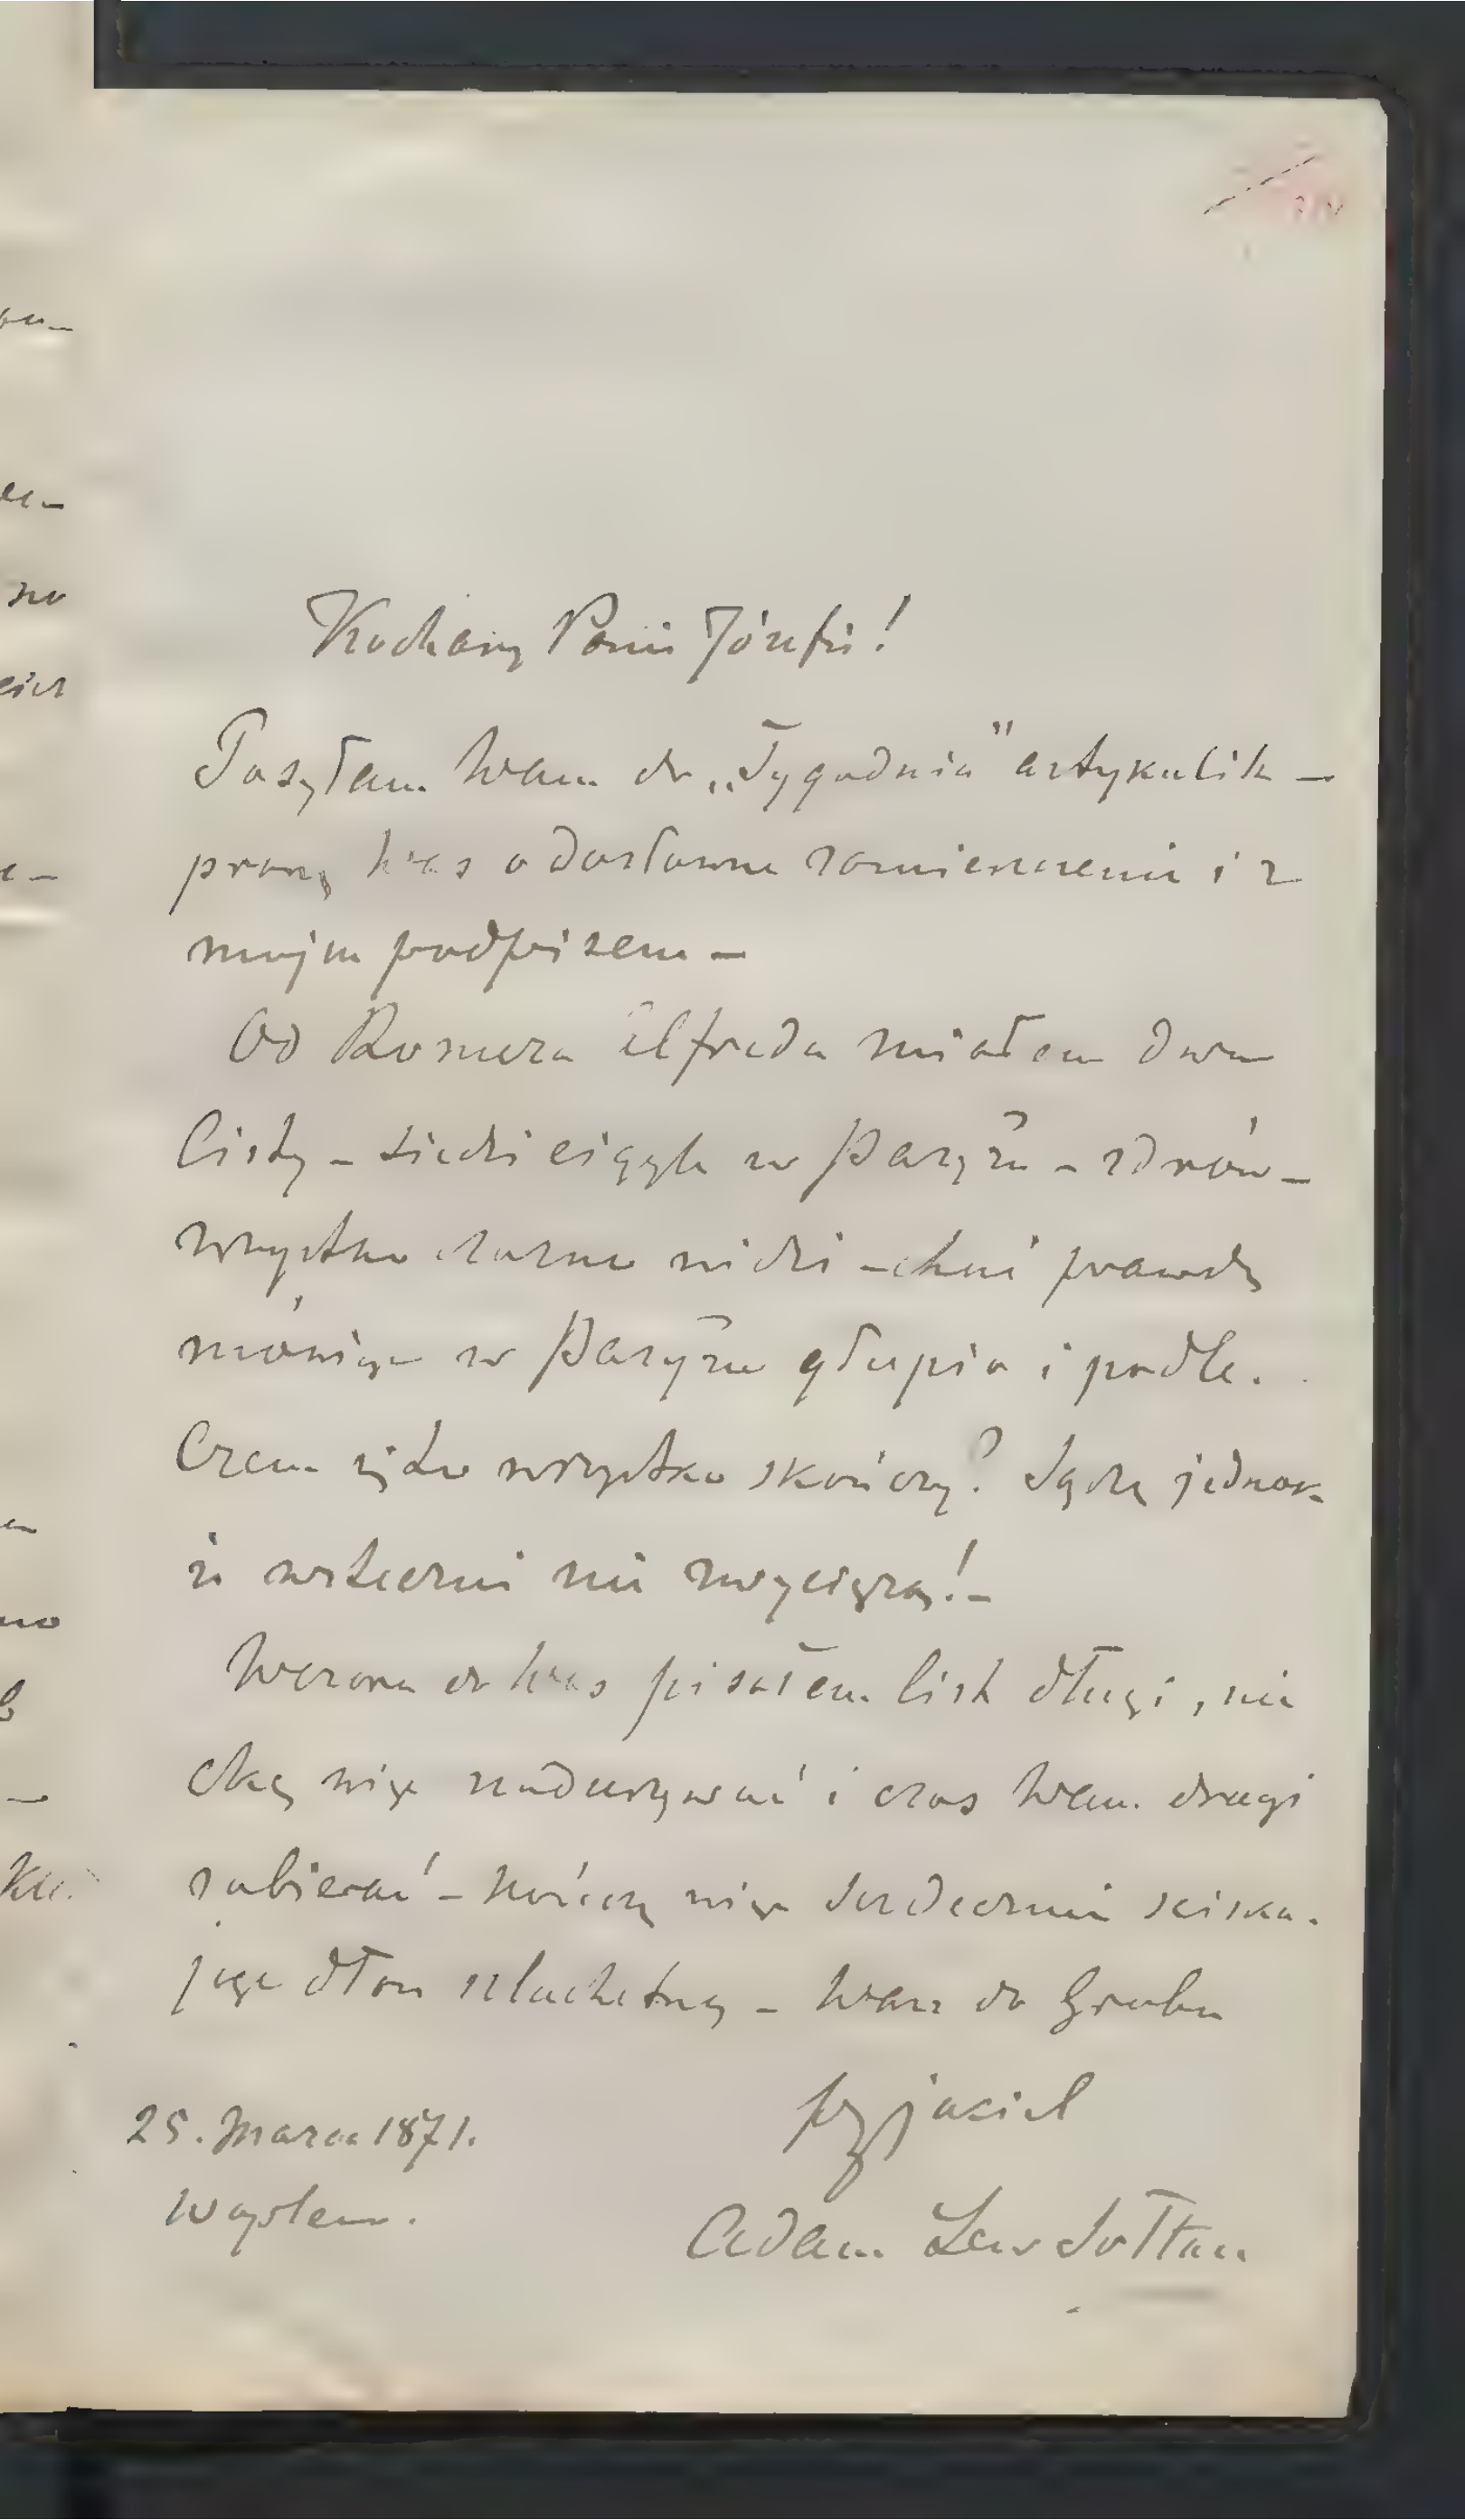 Kochany Panie Józefie!
Posyłam Wam do „Tygodnia” artykulik –
proszę Was o dosłowne zamieszczenie i z
moim podpisem –
Od Romera Alfreda miałem dwa
listy – siedzi ciągle w Paryżu – zdrów –
wszystko czarno widzi – choć prawdę
mówiąc w Paryżu głupio i podle.
Czem się to wszystko skończy? Sądzę jednak
że wsteczni nie zwyciężą! –
Wczora do Was pisałem list długi, nie
chcę więc nadużywać i czas Wam drogi
zabierać – kończę więc serdecznie ściska-
jąc dłoń szlachetną – Wasz do Grobu
przyjaciel
25. Marca 1871.
Adam Lew Sołtan